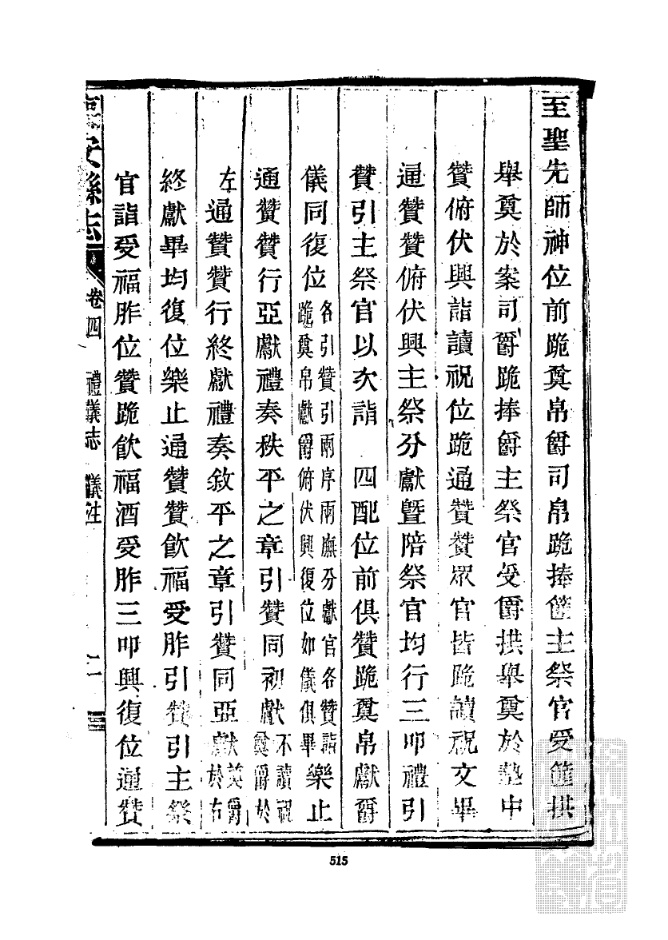 至聖先師神位前跪奠帛爵司帛跪捧篚主祭官受篚拱
舉奠於案司爵跪捧爵主祭官受爵拱舉奠於墊中
贊俯伏興詣讀祝位跪通贊贊眾官皆跪讀祝文畢
通贊贊俯伏興主祭分獻曁陪祭官均行三叩禮引
贊引主祭官以次詣　四配位前俱贊跪奠帛獻爵
儀同復位各引贊引兩序兩廡分獻官各贊詣跪奠帛獻爵俯伏興復位如儀俱畢樂止
通贊贊行亞獻禮奏秩平之章引贊同初獻不讀祝奠爵於
左通贊贊行終獻禮奏敘平之章引贊同亞獻奠爵於右
終獻畢均復位樂止通贊贊飮福受胙引贊引主祭
官詣受福胙位贊跪飮福酒受胙三叩興復位通贊
安縣志
卷四
禮儀志
二
515